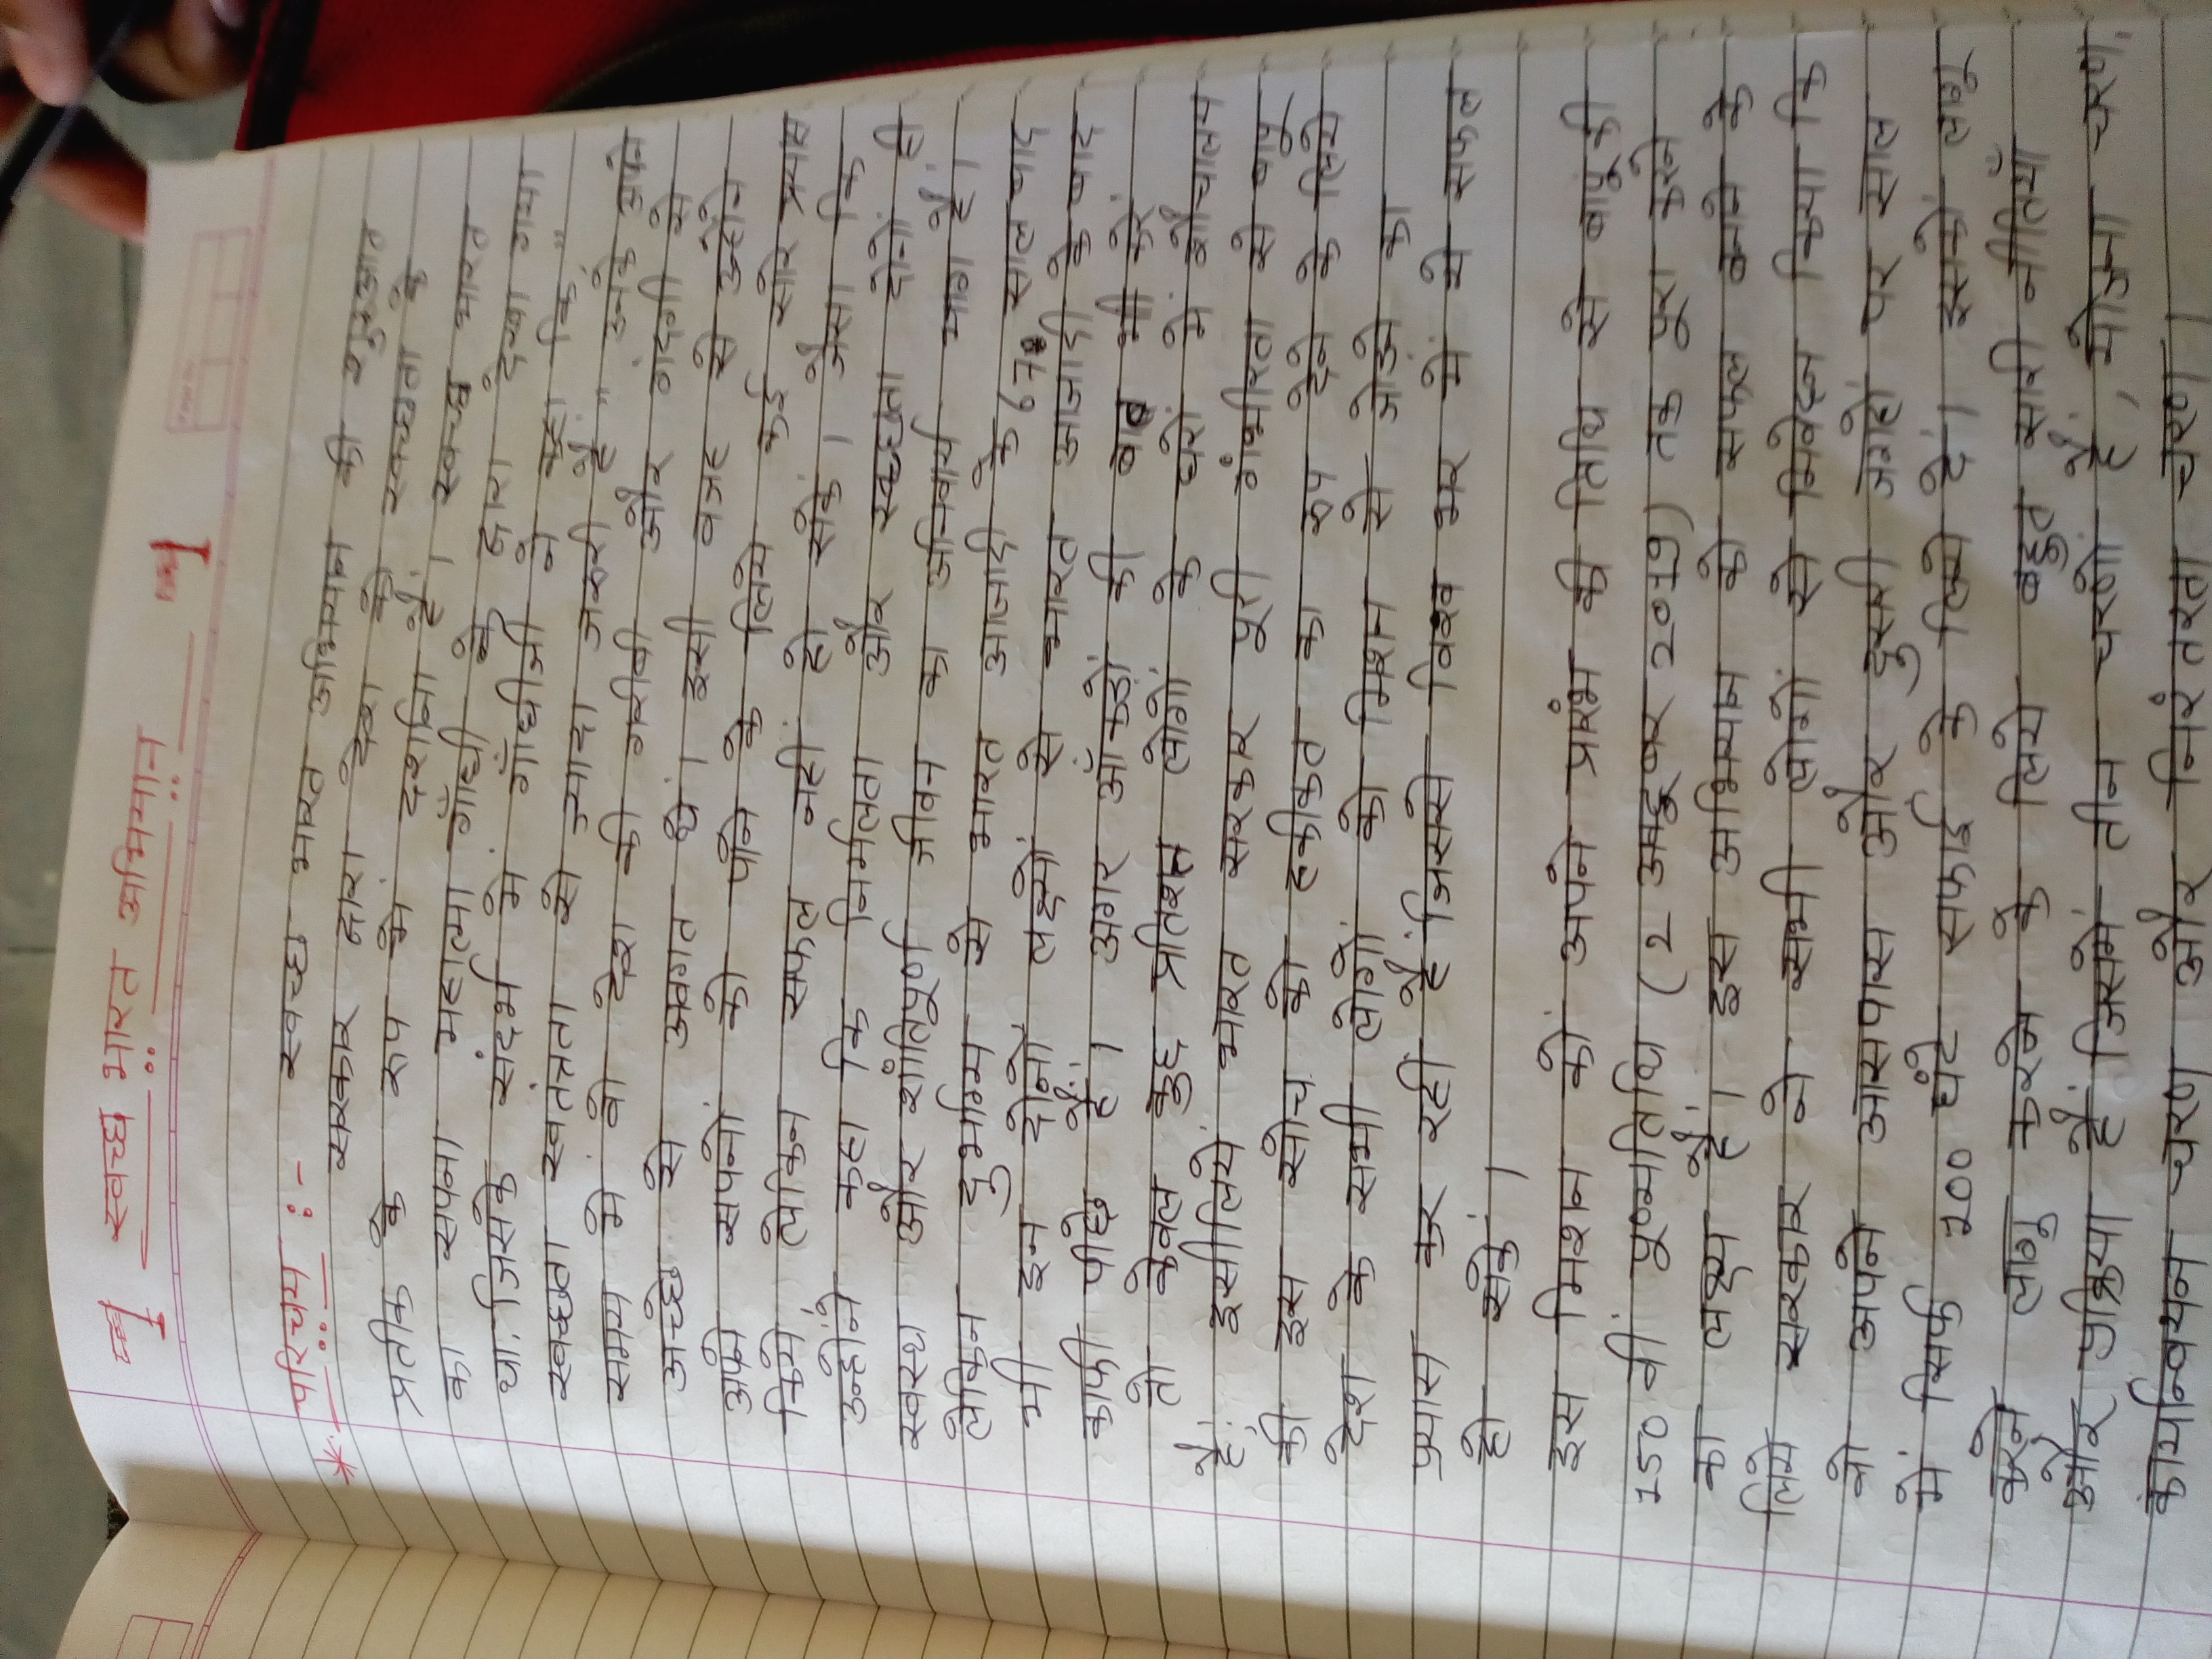 स्वच्छ भारत अभियान
परिचय :-
स्वच्छ भारत अभियान की शुरुआत
सरकार द्वारा देश को स्वच्छता के
प्रतीक के रुप में दर्शाना हैं। स्वच्छ भारत
का सपना महात्मा गाँधी के द्वारा देखा गया
था. जिसके संदर्भ में गाँधीजी ने कहा कि "
स्वच्छता स्वतंत्रता से ज्यादा जरुरी हैं " उनके अपने
समय में वो देश की गरीबी और गंदगी से
अच्छे से अवगत थें। इसी वजह से उन्होंने
अपने सपनों को पाने के लिये कई सारे प्रयास
किये लेकिन सफल नही हो सकें। जैसा कि
उन्होंने कहा कि निर्मलता और स्वच्छता दोनों ही
स्वस्थ और शांतिपूर्ण जीवन का अनिवार्य भाग हैं।
लेकिन दुर्भाग्य से भारत आजादी के 67 साल बाद
भी इन दोनों लक्ष्यों से भारत आजादी के बाद
काफी पीछे हैं। अगर आँकडों की बात भी करें
तो केवल कुछ प्रतिशत लोगों के घरों में शौचालय
हैं. इसीलिये भारत सरकार पूरी गंभीरता से बापू
की इस सोच को हकीकत का रुप देने के लिये
देश के सभी लोगों को मिशन से जोडने का
प्रयास कर रही हैं जिससे विश्व भर में ये सफल
हो सकें।
इस मिशन को अपने प्रारंभ की तिथि से बापू की
150 वीं पूण्यतिथि (2 अक्टूबर 2019) तक पूरा करने
का लक्ष्य हैं। इस अभियान को सफल बनाने के
लिये सरकार ने सभी लोगों से निवेदन किया कि
वो अपने आसपास और दुसरी जगहों पर साल
में सिर्फ 100 घंटे सफाई के लिये दें। इसकों लागू
करने लागु करने के लिये बहुत सारी नीतियाँ
और प्रक्रिया हैं जिसमें तीन चरणों हैं, योजना चरण,
कार्यान्वियन चरण और निरंतरता चरण।